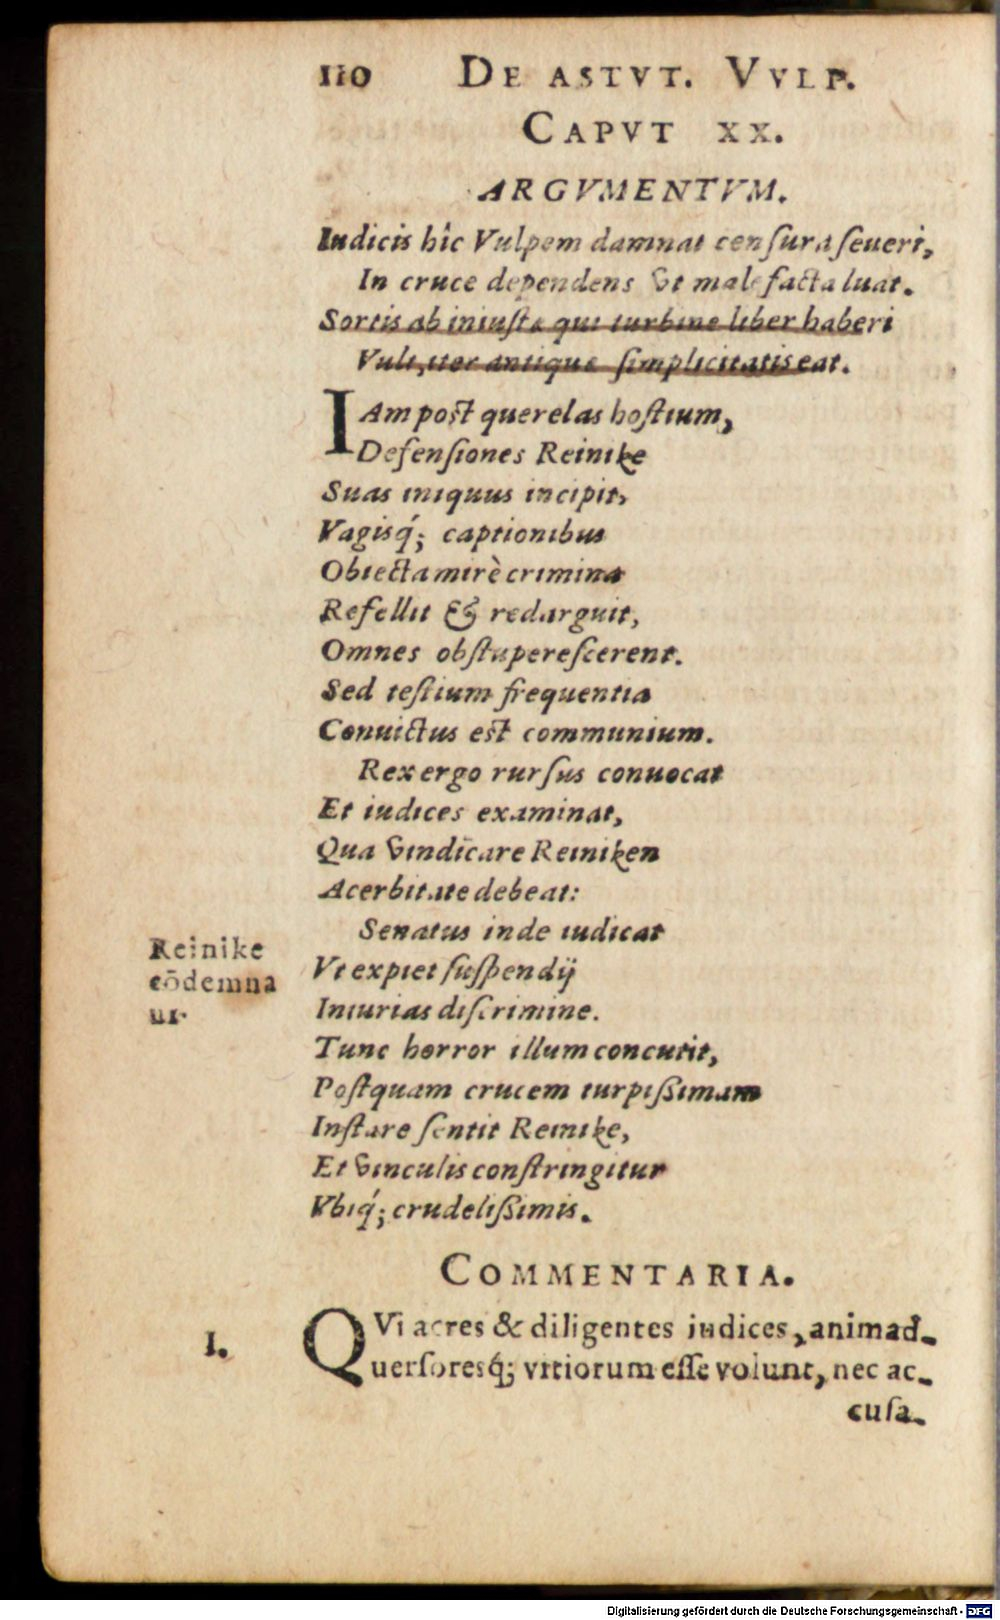 110 DE ASTVT. VVLP.
CAPVT XX.
ARGVMENTVM.
Iudicis hîc Vulpem damnat censura seueri,
In cruce dependens vt malefacta luat.
Sortis ab iniustæ qui turbine liber haberi
Vult, iter antiquæ simplicitatis eat.
IAm post querelas hostium,
Defensiones Reinike
Suas iniquus incipit,
Vagisq́; captionibus
Obiecta mirè crimina
Refellit & redarguit,
Omnes obstuperescerent.
Sed testium frequentia
Conuictus est communium.
Rex ergo rursus conuocat
Et iudices examinat,
Qua vindicare Reiniken
Acerbitate debeat:
Senatus inde iudicat
Vt expiet suspendij
Iniurias discrimine.
Reinike
cōdemna
ur.
Tunc horror illum concutit,
Postquam crucem turpissimam
Instare sentit Reinike,
Et vinculis constringitur
Vbiq́; crudelissimis.
COMMENTARIA.
I. QVi acres & diligentes iudices, animad-
uersoresq́; vitiorum esse volunt, nec ac-
cusa-
Digitalisierung gefördert durch die Deutsche Forschungsgemeinschaft - DFG